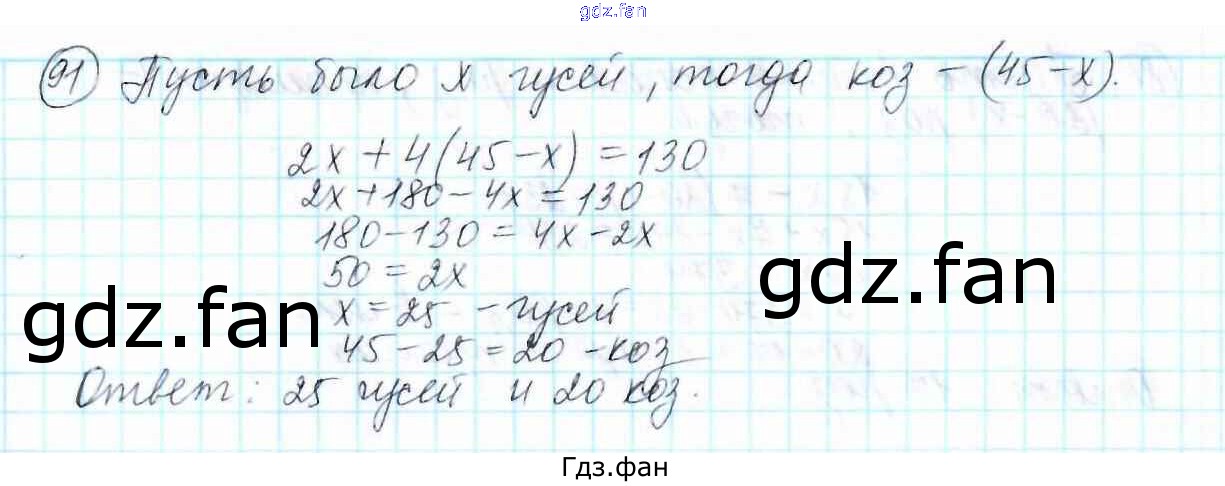 gdz.fan
91 Пусть было x гусей, тогда коз – (45-x).
2x + 4(45-x) = 130
2x+180-4x=130
180-130=4x-2x
50=2x
gdz.fan
gdz.fan
x=25 - гусей
45-25=20 -коз
Ответ: 25 гусей и 20 коз.
Гдз.фан